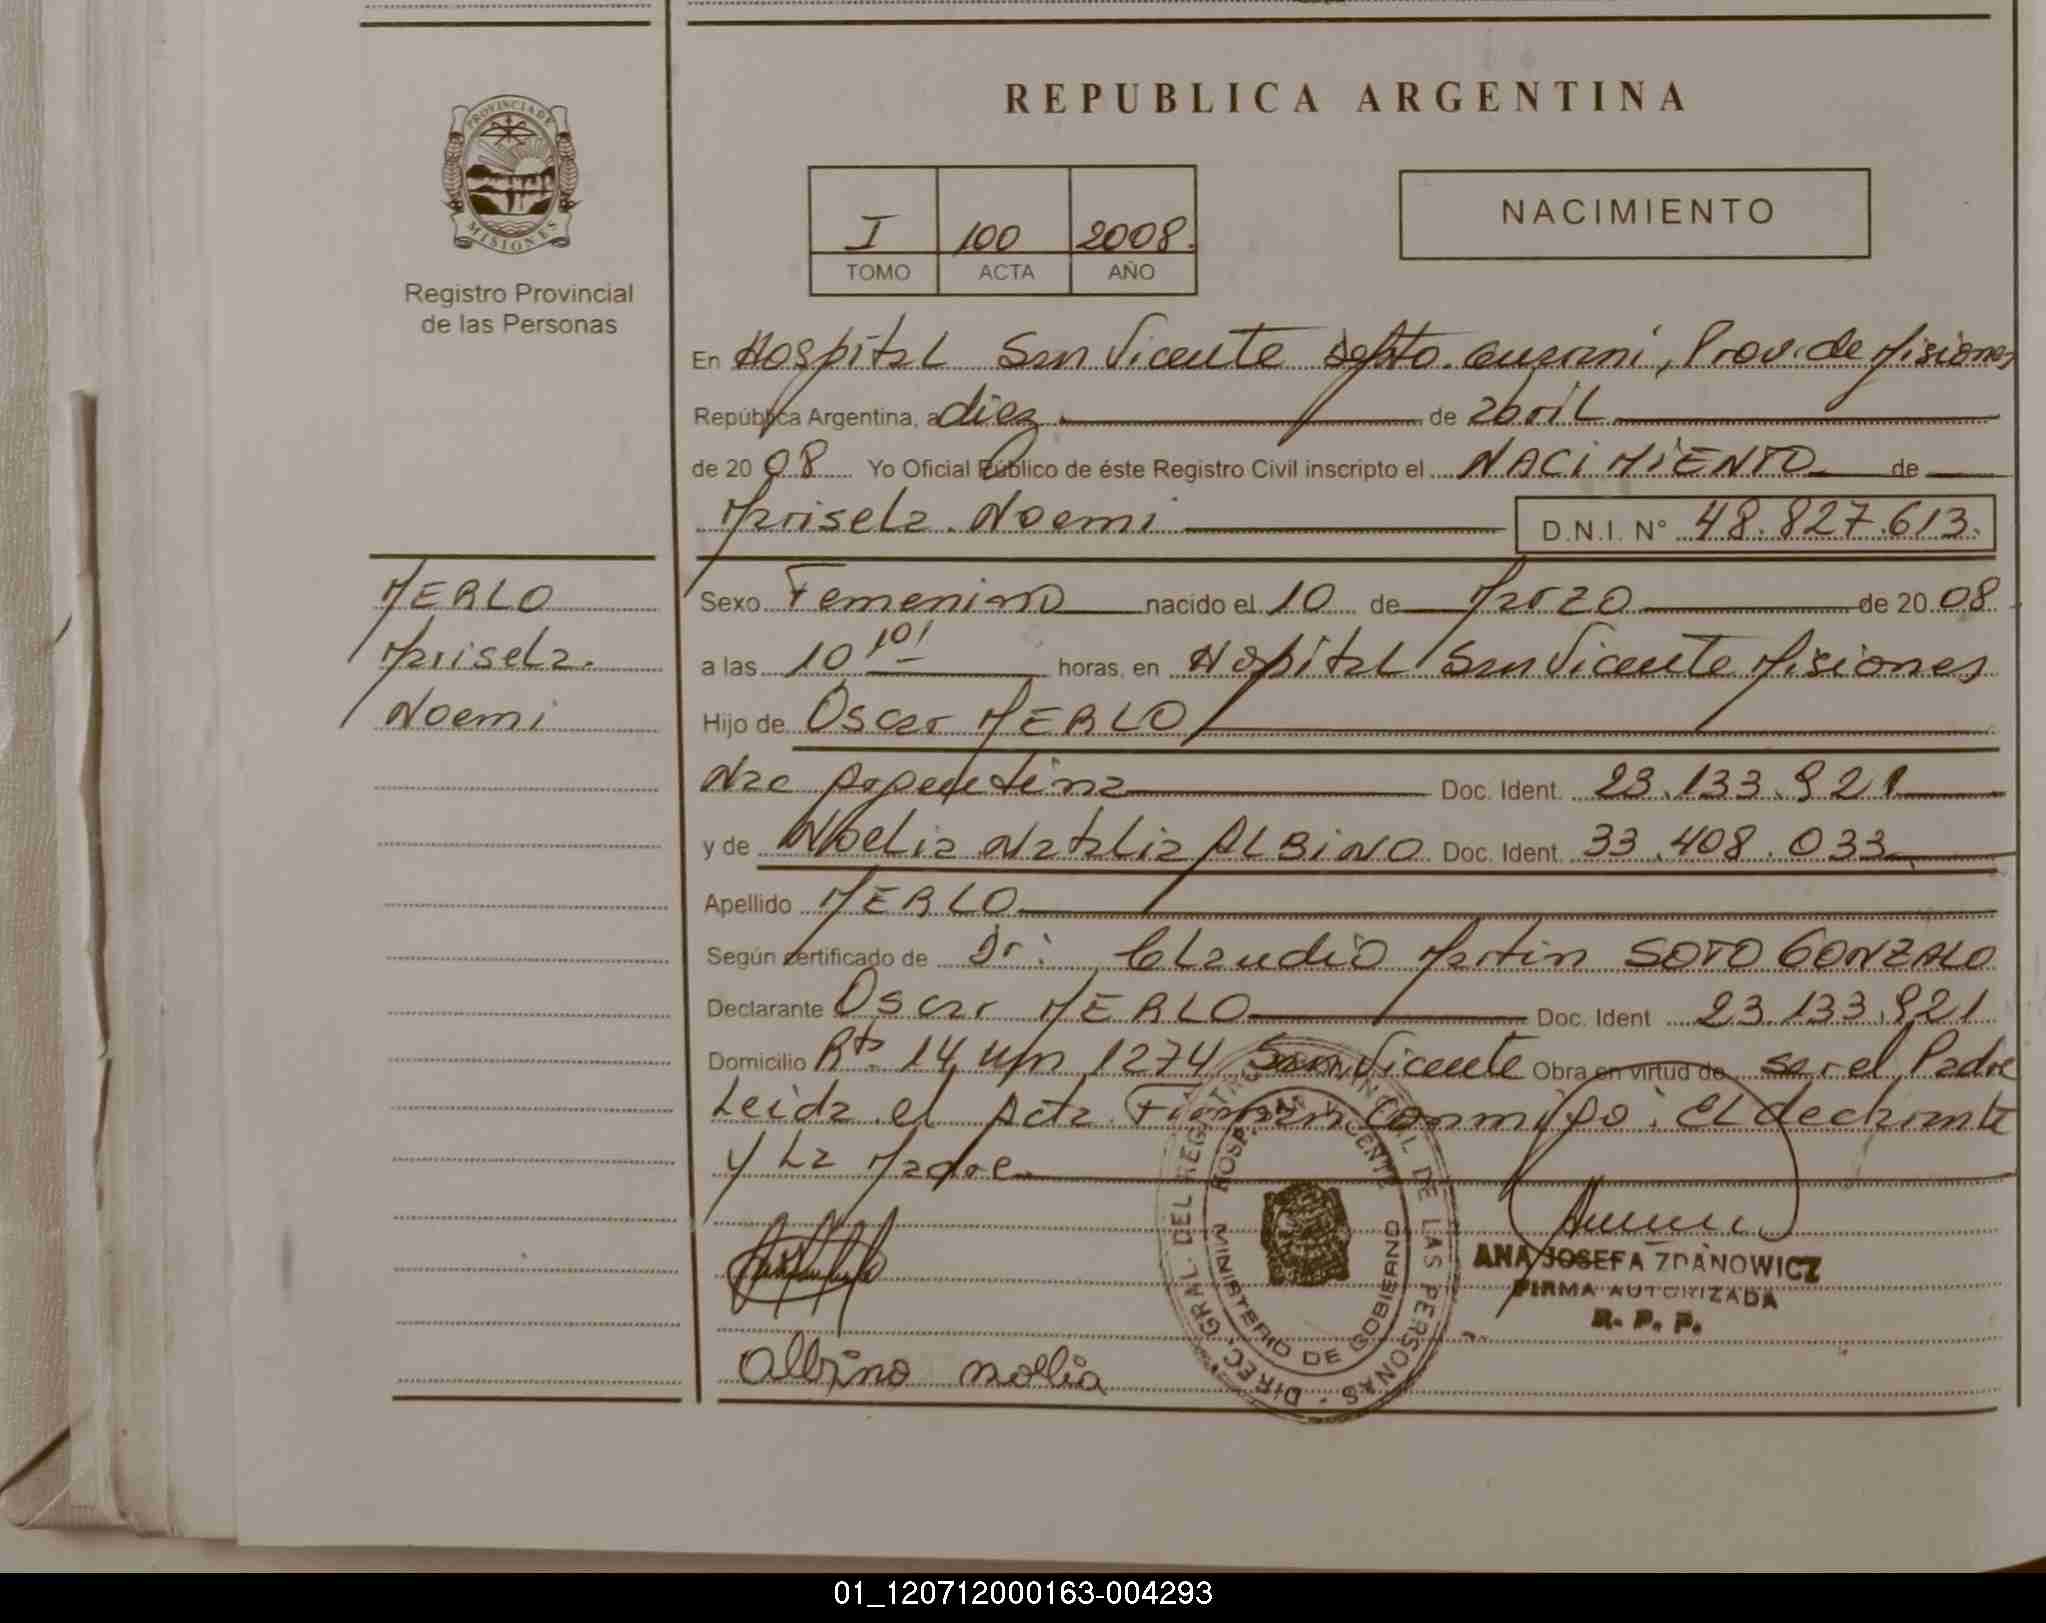 REPUBLICA ARGENTINA
PROVINCIA DE
MISIONES
Registro Provincial
de las Personas
I 100 2008.
TOMO ACTA AÑO
NACIMIENTO
En Hospital San Vicente Depto. Guarani, Prov. de Misiones
República Argentina, a diez de abril
de 20 08 Yo Oficial Público de éste Registro Civil inscripto el NACIMIENTO de
Marisela Noemi D.N.I. N° 48.827.613.
MERLO
Marisela
Noemi
Sexo Femenino nacido el 10 de Marzo de 20 08
a las 10 10' horas, en Hospital San Vicente Misiones
Hijo de Oscar MERLO
Nac Argentina Doc. Ident. 23.133.921
y de Noelia Natalia ALBINO Doc. Ident. 33.408.033
Apellido MERLO
Según certificado de Dr: Claudio Martin SOTO GONZALO
Declarante Oscar MERLO Doc. Ident 23.133.921
Domicilio Rta 14 Km 1274 San Vicente Obra en virtud de ser el Padre
Leida el Acta Firman Conmigo: El declarante
y La Madre
DIREC. GRAL. DEL REGISTRO PROVINCIAL DE LAS PERSONAS
HOSP. SAN VICENTE
MINISTERIO DE GOBIERNO
ANA JOSEFA ZDANOWICZ
FIRMA AUTORIZADA
R. P. P.
Albino noelia
01_120712000163-004293